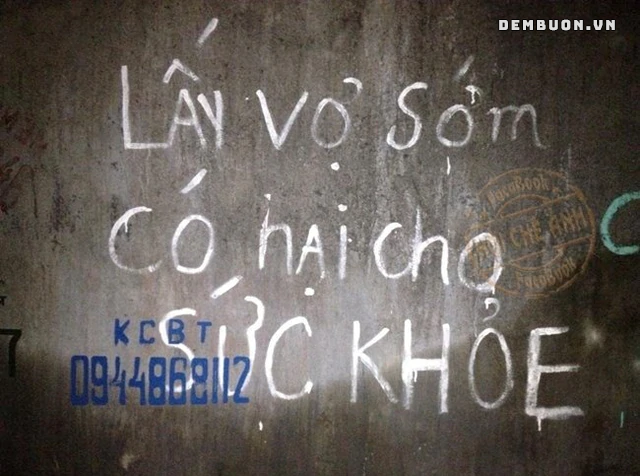 DEMBUON.VN
LẤY Vợ Sớm
FaceBook
CHẾ ẢNH
FaceBook
Có hẠi cho
SỨC KHỎE
KCBT
0944868112